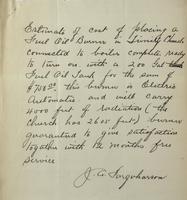 Estimate of cost of placing a
Fuel Oil Burner in Trinity Church
connected to boiler complete ready
to turn on with a 200 Gal
Fuel Oil Tank for the sum of
this burner is Electric
Automatic and will carry
4000 feet of radiation (the
church has 2605 feet) burner
guaranteed to give satisfaction
together with 12 months free
service
J. A. Farquharson